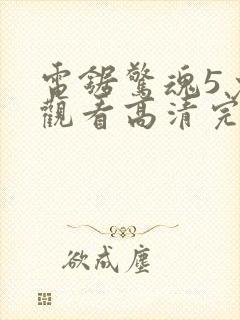 電鋸驚魂5
觀看高清完
欲成塵